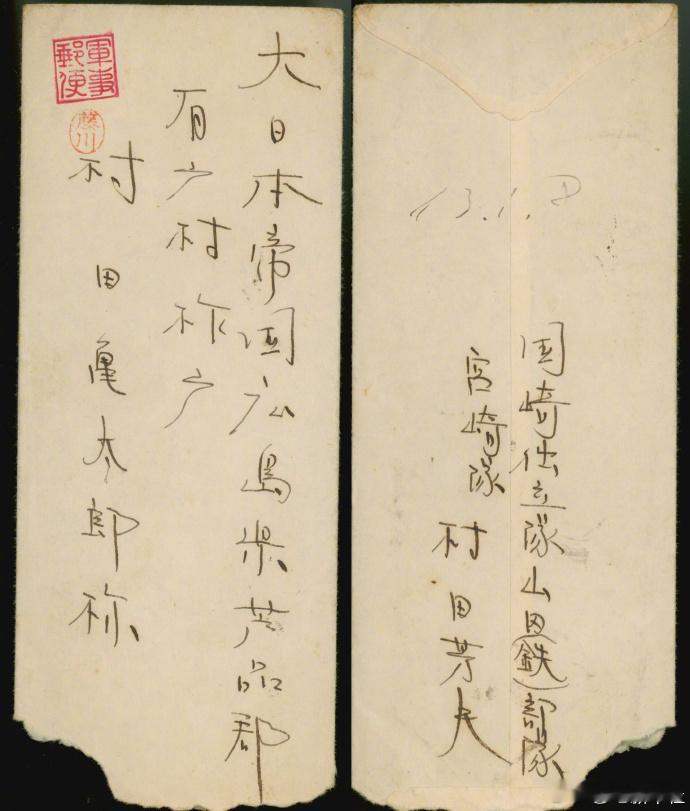 軍事郵便
藤川
大日本帝国広島県芦品郡
有广村柞广
村田亀太郎様
13.1.8
国崎仕立隊山田(鉄)部隊
宮崎隊
村田芳夫